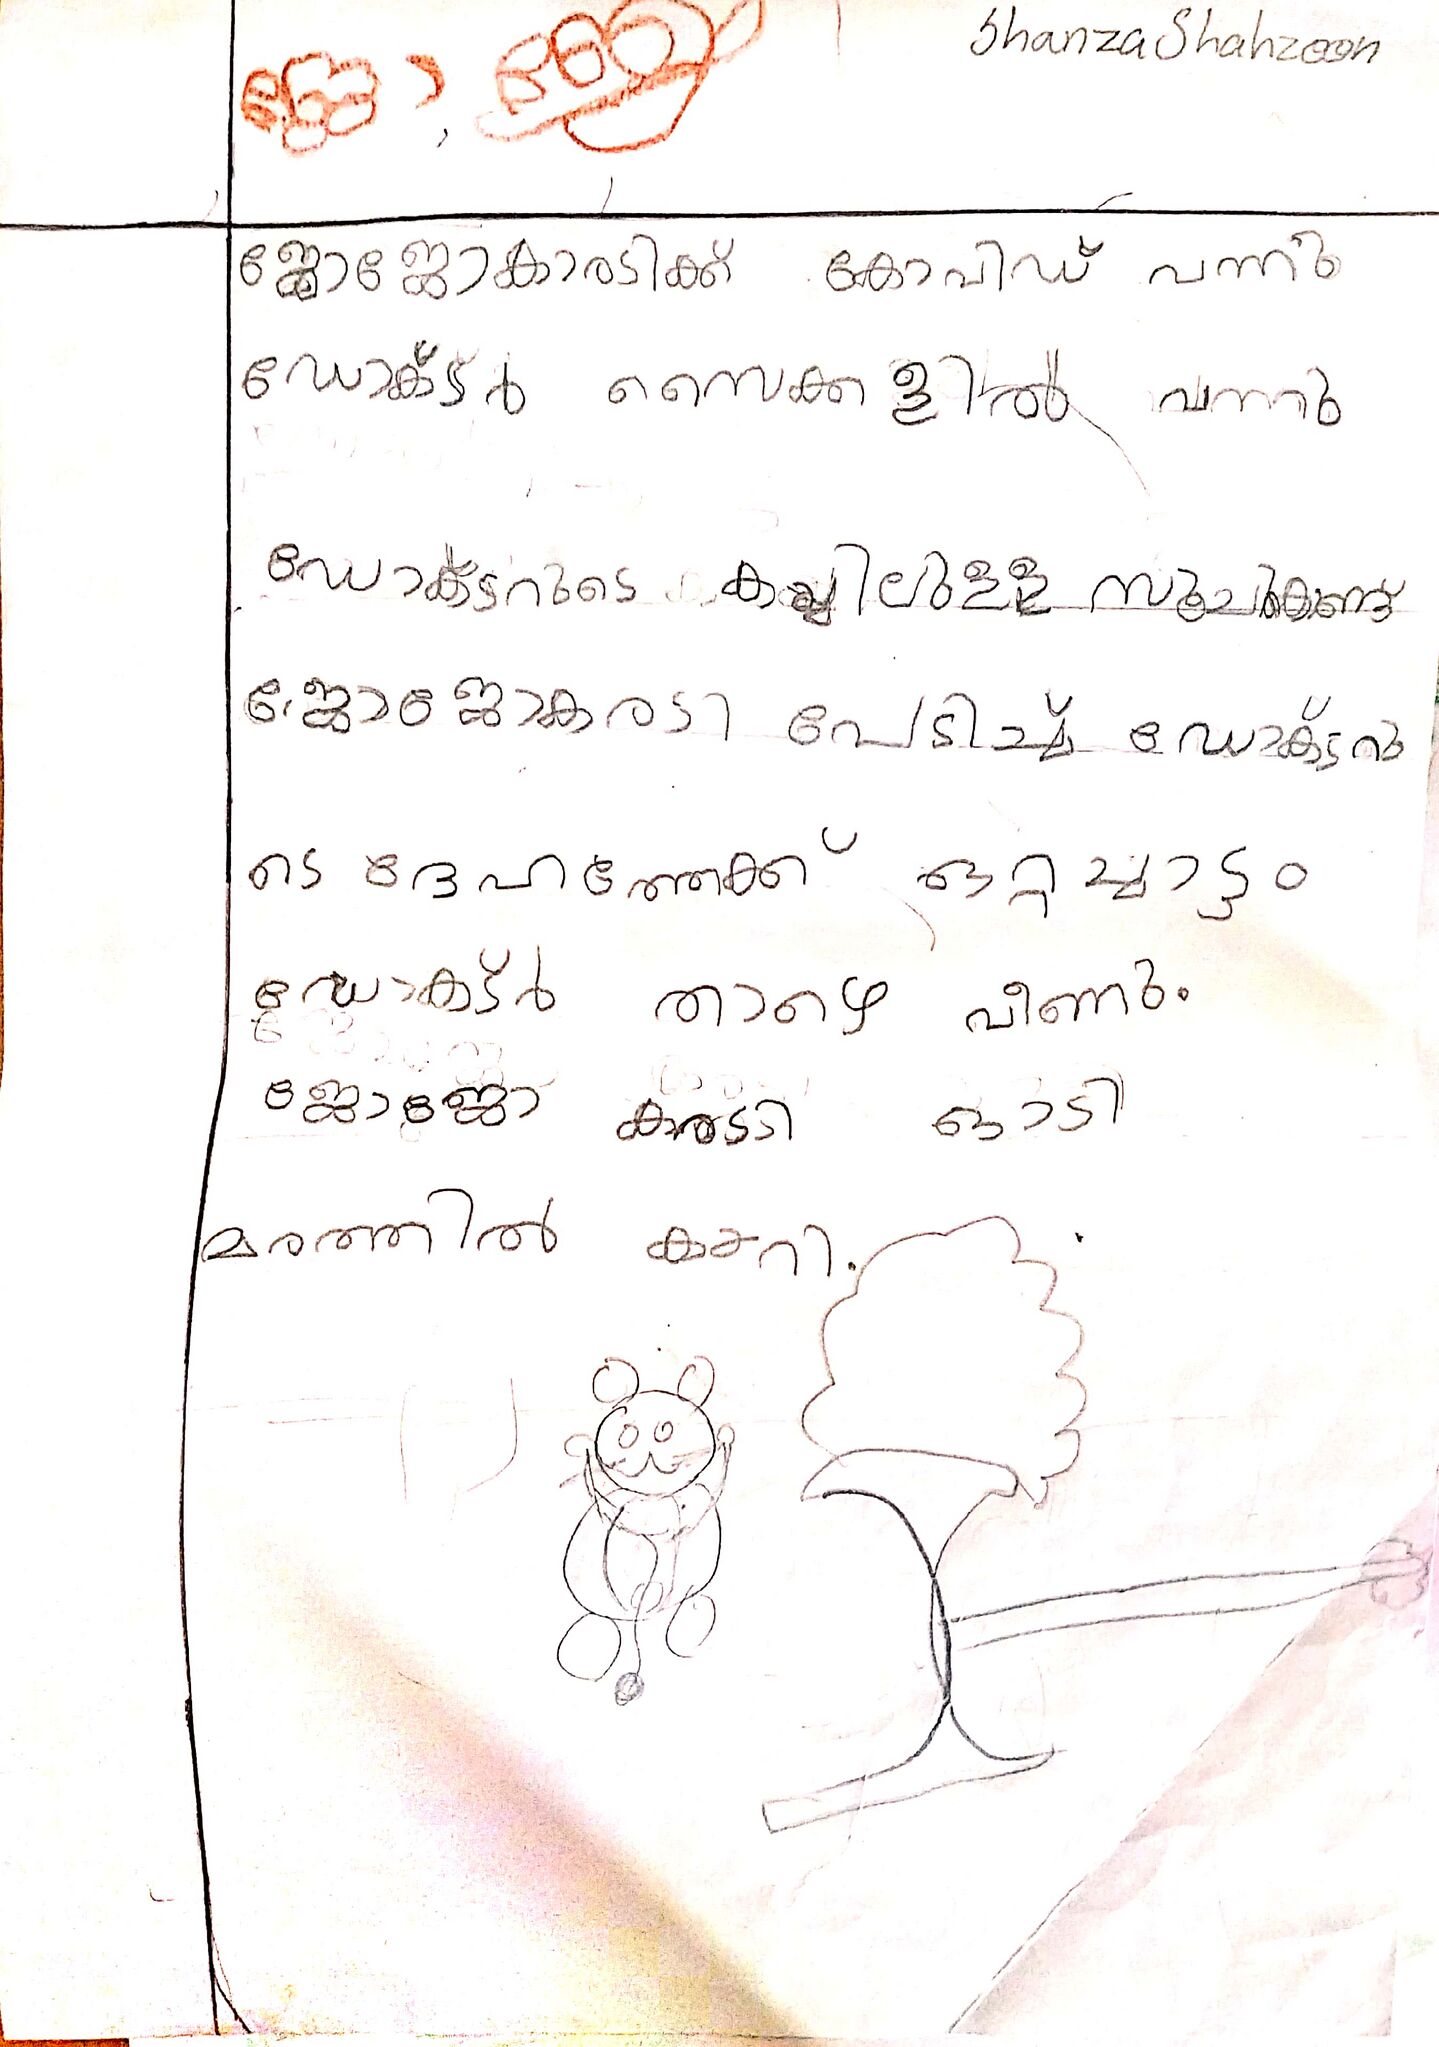 Shanza Shahzoon
ജോജോകാരടിക്ക് കോവിഡ് വന്നു
ഡോക്ട്ർ സൈക്കളിൽ വന്നു
ഡോക്ടറുടെ കയ്യിലുള്ള
ജോജോകരടി പേടിച്ച് ഡോക്ടറു
ടെ ദേഹത്തേക്ക് ഒറ്റച്ചാട്ടം
ഡോക്ട്ർ താഴെ വീണു.
ജോജോ കരടി ഓടി
മരത്തിൽ കയറി.